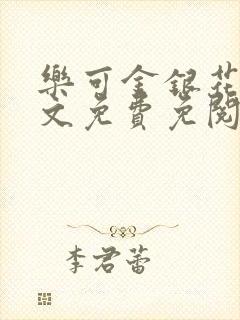 樂可金銀花
文免費免閱
李君蕾